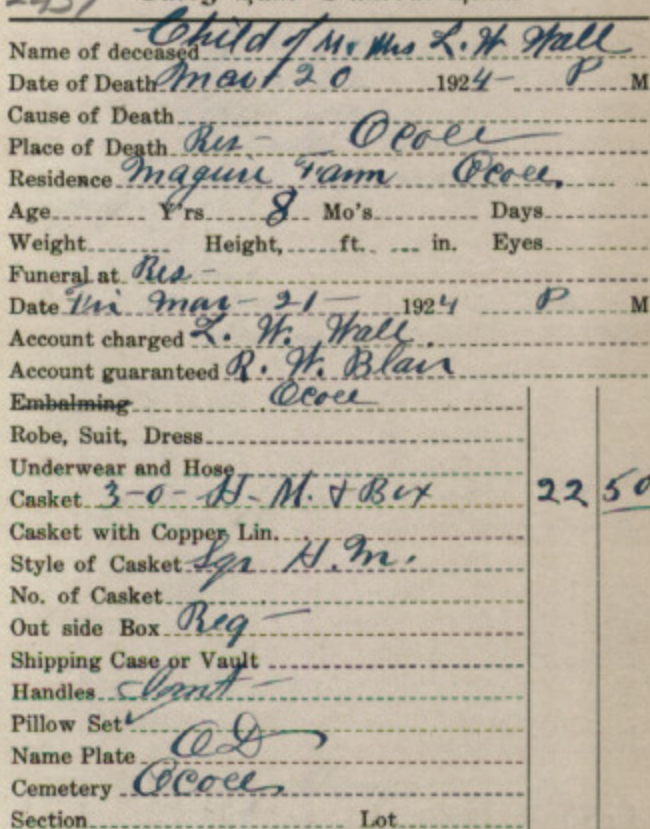 Name of deceased Child of Mr. Mrs L. W Wall
Date of Death Mar 20 1924 P M
Cause of Death
Place of Death Res - Ocoee
Residence Maguire Farm Ocoee.
Age Y'rs 8 Mo's Days
Weight Height, ft. in. Eyes
Funeral at Res -
Date Fri Mar - 21 - 1924 P M
Account charged L. W. Wall.
Account guaranteed R. W. Blair
Embalming Ocoee
Robe, Suit, Dress
Underwear and Hose
Casket 3-0- H-M. & Box 22 50
Casket with Copper Lin.
Style of Casket Sqr H.M.
No. of Casket
Out side Box Reg -
Shipping Case or Vault
Handles
Pillow Set
Name Plate O D
Cemetery Ocoee
Section Lot